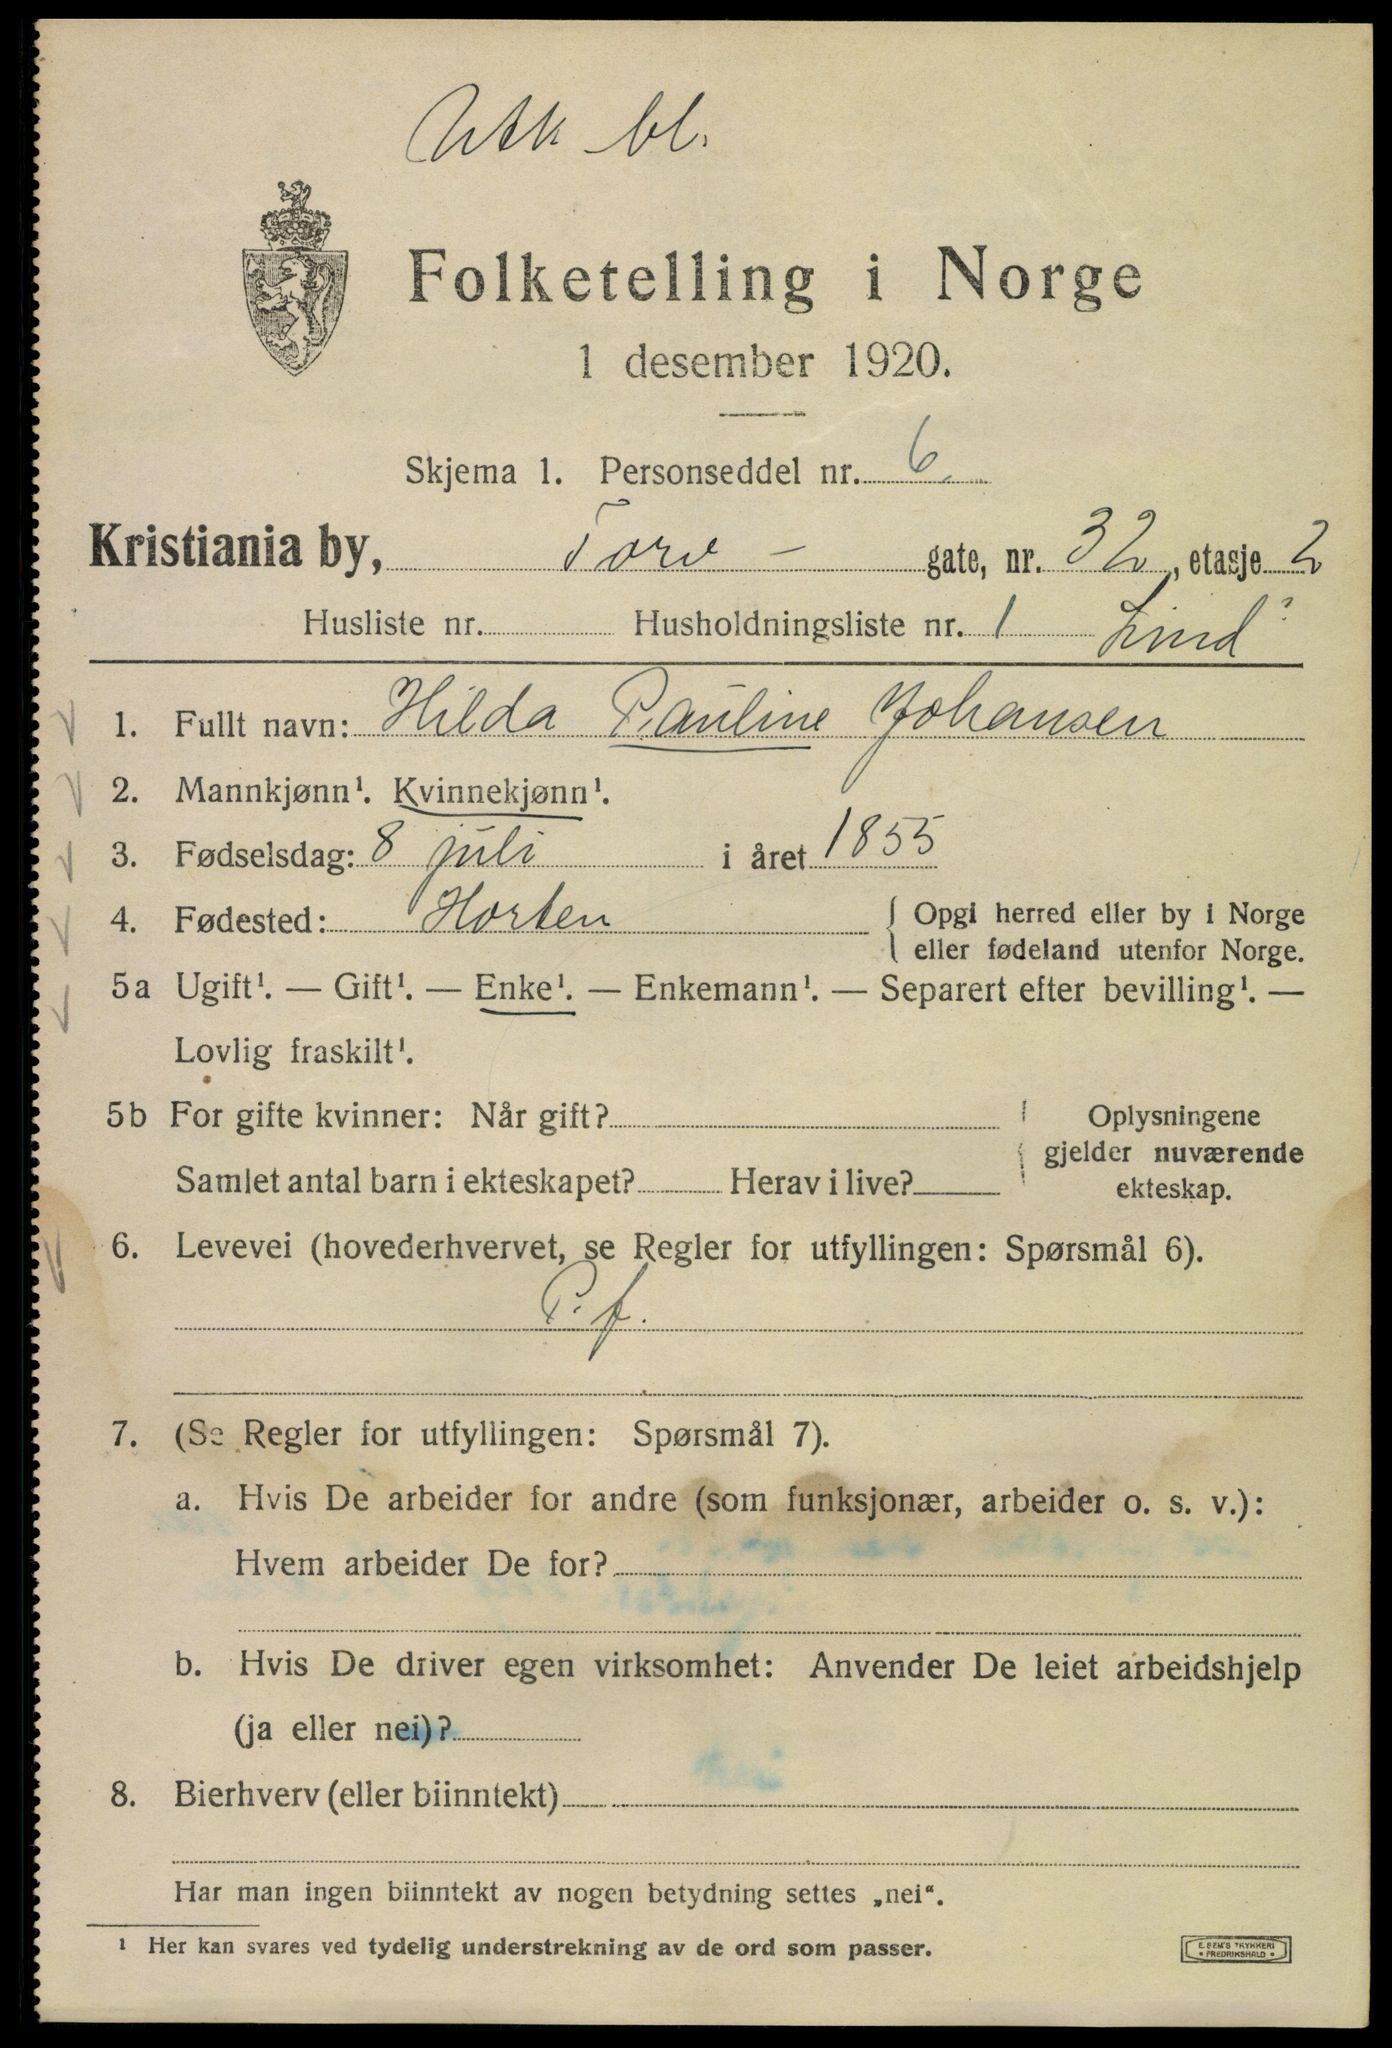 Utk bl.
Folketelling i Norge
1 desember 1920.
Skjema 1. Personseddel nr. 6.
Kristiania by, Torv - gate, nr. 32, etasje 2
Husliste nr. Husholdningsliste nr. 1 Lind
1. Fullt navn: Hilda Pauline Johansen
2. Mannkjønn¹. Kvinnekjønn¹.
3. Fødselsdag: 8 juli i året 1855
4. Fødested: Horten { Opgi herred eller by i Norge
eller fødeland utenfor Norge.
5a Ugift¹. — Gift¹. — Enke¹. — Enkemann¹. — Separert efter bevilling¹. —
Lovlig fraskilt¹.
5b For gifte kvinner: Når gift? Oplysningene
gjelder nuværende
Samlet antal barn i ekteskapet? Herav i live? ekteskap.
6. Levevei (hovederhvervet, se Regler for utfyllingen: Spørsmål 6).
P. f.
7. (Se Regler for utfyllingen: Spørsmål 7).
a. Hvis De arbeider for andre (som funksjonær, arbeider o. s. v.):
Hvem arbeider De for?
b. Hvis De driver egen virksomhet: Anvender De leiet arbeidshjelp
(ja eller nei)?
8. Bierhverv (eller biinntekt)
Har man ingen biinntekt av nogen betydning settes „nei“.
¹ Her kan svares ved tydelig understrekning av de ord som passer.
E. SEM'S TRYKKERI
• FREDRIKSHALD •